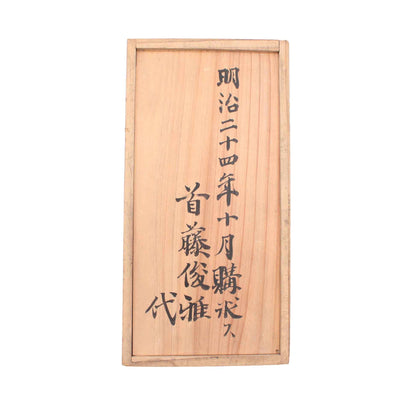 明治二十四年十月購求ス
首藤俊雅
代